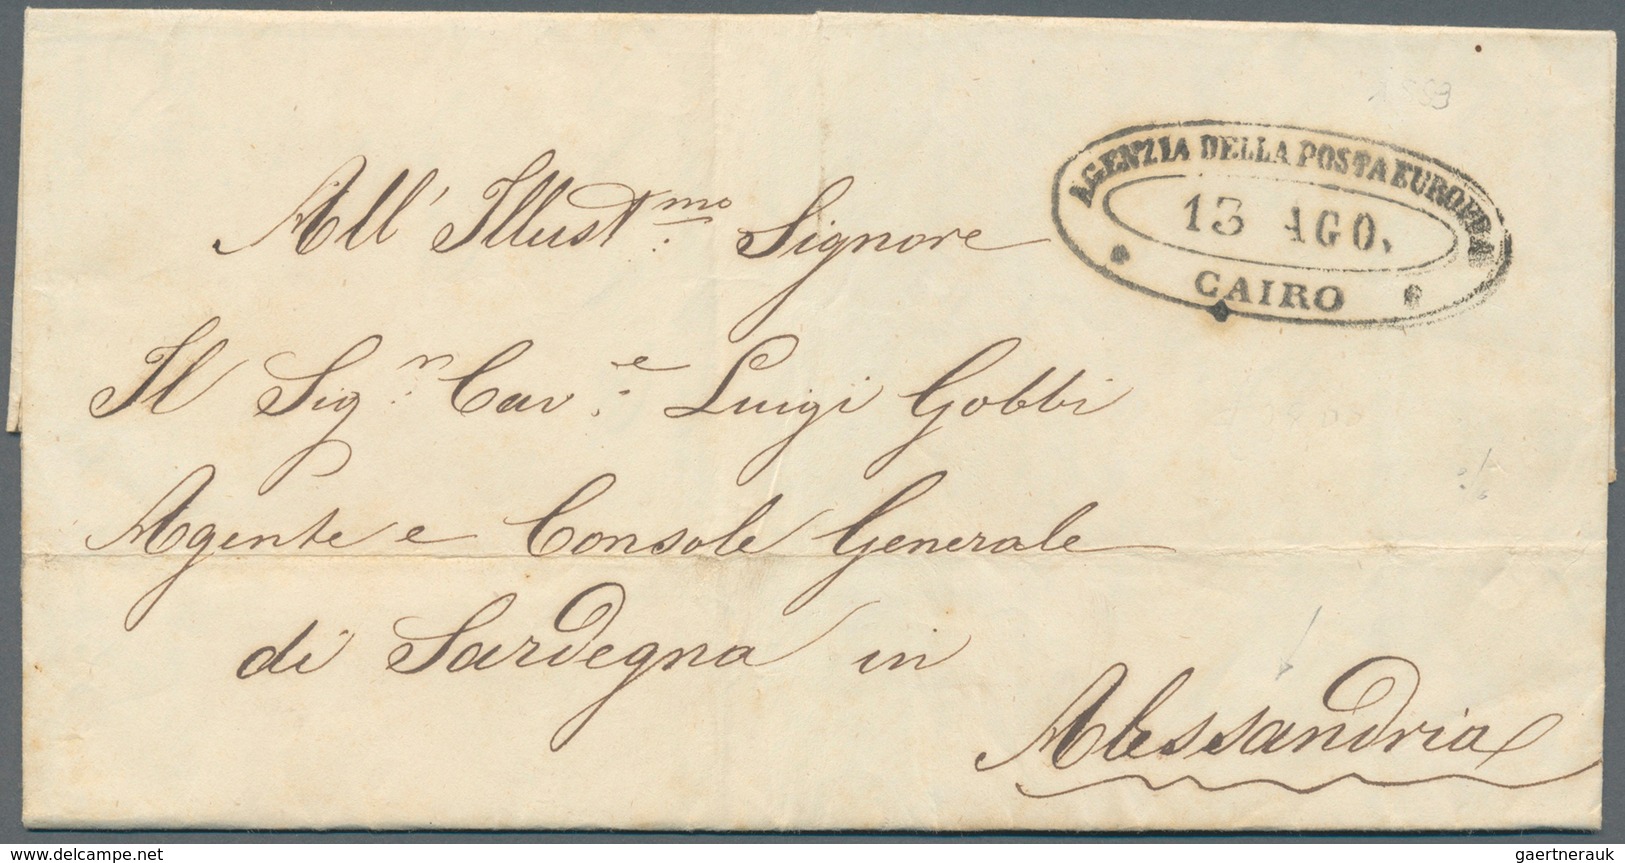 AGENZIA DELLA POSTA EUROPEA
13 AGO.
CAIRO
All' Illust.mo Signore
Il Sig.n Cav.e Luigi Gobbi
Agente e Console Generale
di Sardegna in
Alessandria
www.delcampe.net
gaertnerauk